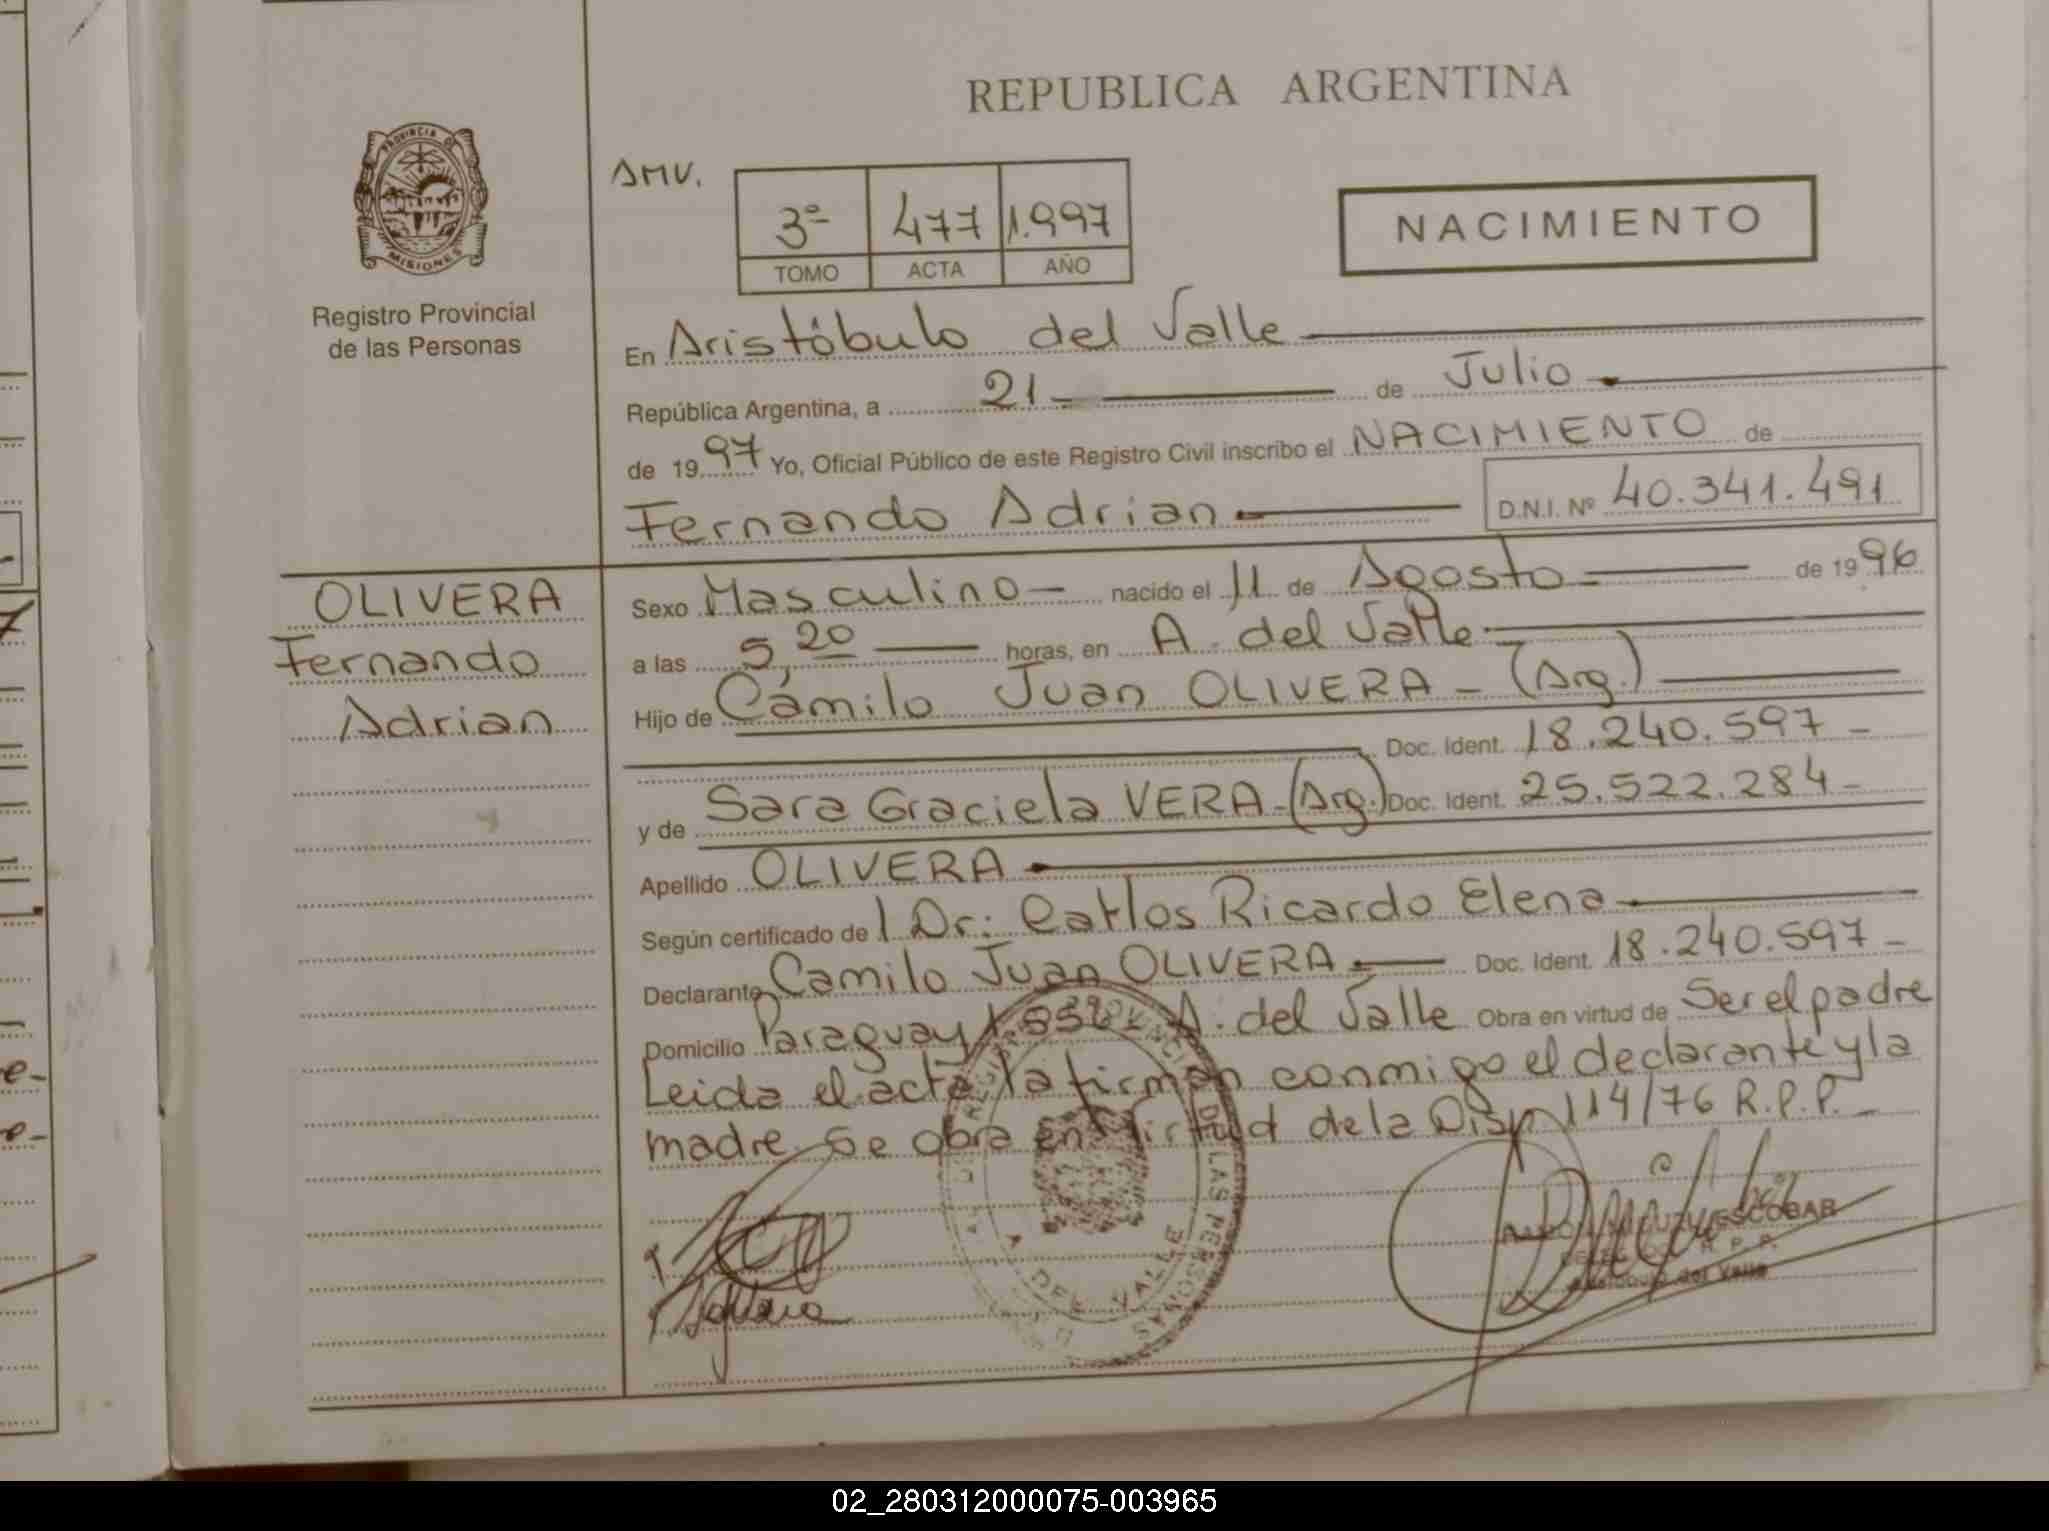 REPUBLICA ARGENTINA
PROVINCIA DE
MISIONES
Registro Provincial
de las Personas
AMV.
3º 477 1.997
TOMO ACTA AÑO
NACIMIENTO
En Aristóbulo del Valle
República Argentina, a 21 de Julio
de 1997 Yo, Oficial Público de este Registro Civil inscribo el NACIMIENTO de
Fernando Adrian D.N.I. Nº 40.341.491
OLIVERA
Fernando
Adrian
Sexo Masculino nacido el 11 de Agosto de 1996
a las 5,20 horas, en A. del Valle
Hijo de Camilo Juan OLIVERA - (Arg.)
Doc. Ident. 18.240.597 -
y de Sara Graciela VERA - (Arg.) Doc. Ident. 25.522.284 -
Apellido OLIVERA
Según certificado de l Dr: Carlos Ricardo Elena
Declarante Camilo Juan OLIVERA Doc. Ident. 18.240.597 -
Domicilio Paraguay A. del Valle Obra en virtud de Ser el padre
Leida el acta la firman conmigo el declarante y la
madre se obra en virtud de la Disp 114/76 R.P.P. -
A. DEL VALLE
ESCOBAR
R. P. P.
Aristobulo del Valle
02_280312000075-003965